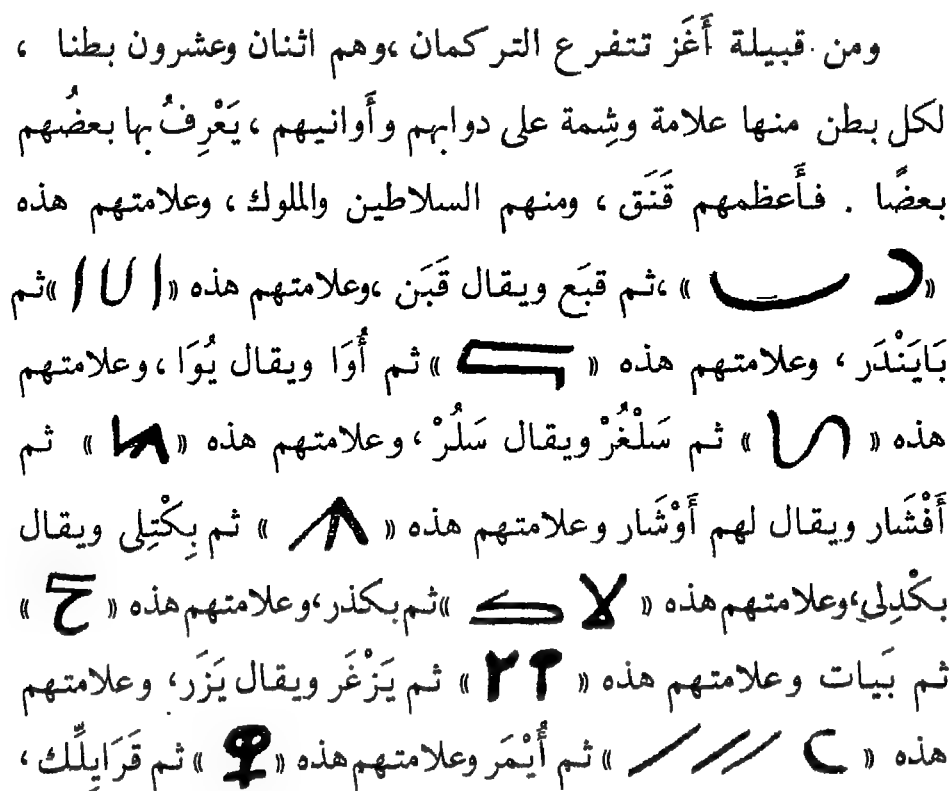 ومن قبيلة أَغَز تتفرع التركمان ،وهم اثنان وعشرون بطنا ،
لكل بطن منها علامة وشِمة على دوابهم وأَوانيهم ، يَعْرِفُ بها بعضُهم
بعضًا . فأَعظمهم قَنَق ، ومنهم السلاطين والملوك ، وعلامتهم هذه
« » ،ثم قبَع ويقال قَبَن ،وعلامتهم هذه « » ثم
بَايَنْدَر ، وعلامتهم هذه « » ثم أُوَا ويقال يُوَا ، وعلامتهم
هذه « » ثم سَلْغُرْ ويقال سَلُرْ ، وعلامتهم هذه « » ثم
أَفْشَار ويقال لهم أَوْشَار وعلامتهم هذه « » ثم بِكْتِلى ويقال
بكْدِلي،وعلامتهم هذه « » ثم بكذر،وعلامتهم هذه « »
ثم بَيات وعلامتهم هذه « » ثم يَزْغَر ويقال يَزَر، وعلامتهم
هذه « » ثم أَيْمَر وعلامتهم هذه « » ثم قَرَابِلِّك ،